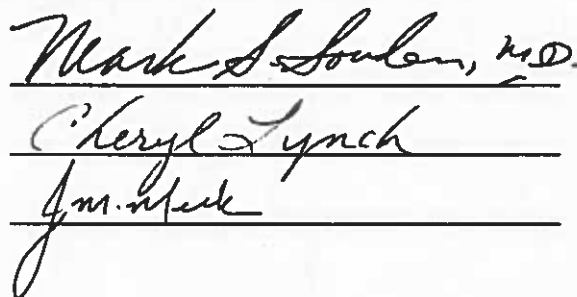 Mark S. Soulen, M.D.
Cheryl Lynch
J.M. Meek